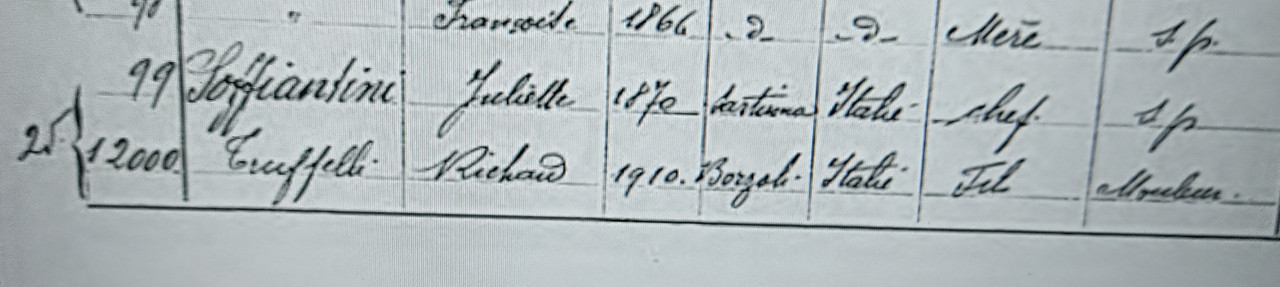 " Françoise 1866 -d- -d- Mère s.p.
99 Soffiantini Juliette 1870 Italie chef. s.p.
25 12000 Truffelli Richard 1910. Borzoli. Italie Fils Mouleur.